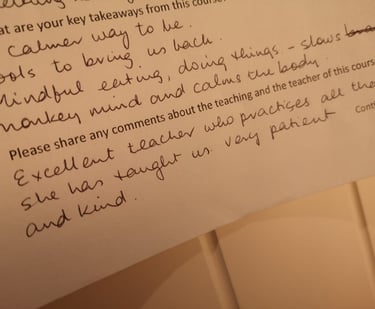 at are your key takeaways from this cours
calmer way to be.
ools to bring us back.
Mindful eating, doing things - slows
monkey mind and calms the body.
Please share any comments about the teaching and the teacher of this course
Excellent teacher who practises all the
she has taught us. very patient Conti
and kind.